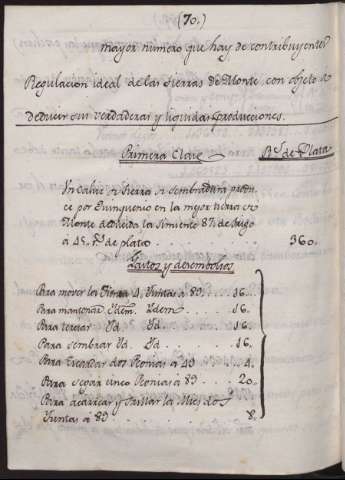 (70.)
mayor numero que hay de contribuyentes
Regulacion ideal de las tierras de Monte con objeto de
deducir sus verdaderas y liquidas producciones.
Primera Clase R.s de Plata
Un cahiz de tierra de sembradura produ-
ce por quinquenio en la mejor tierra de
Monte deducida la simiente 8 de trigo
á 45 r.s de plata . . . . . . . . . . . . 360.
Gastos y desembolsos
Para mover la tierra 4 Juntas á 8 . . 16 . .
Para mantornar Ydem. Ydem . . . 16 . .
Para terciar Yd. Yd. . . . . 16 . .
Para sembrar Yd. Yd. . . . . 16 . .
Para dos Peonias á 4 . . . . . 4 . .
Para segar cinco Peonias á 8 . . . . 20 . .
Para acarrear y trillar la Mies dos
Juntas á 8 . . . . . . . . . . 8.